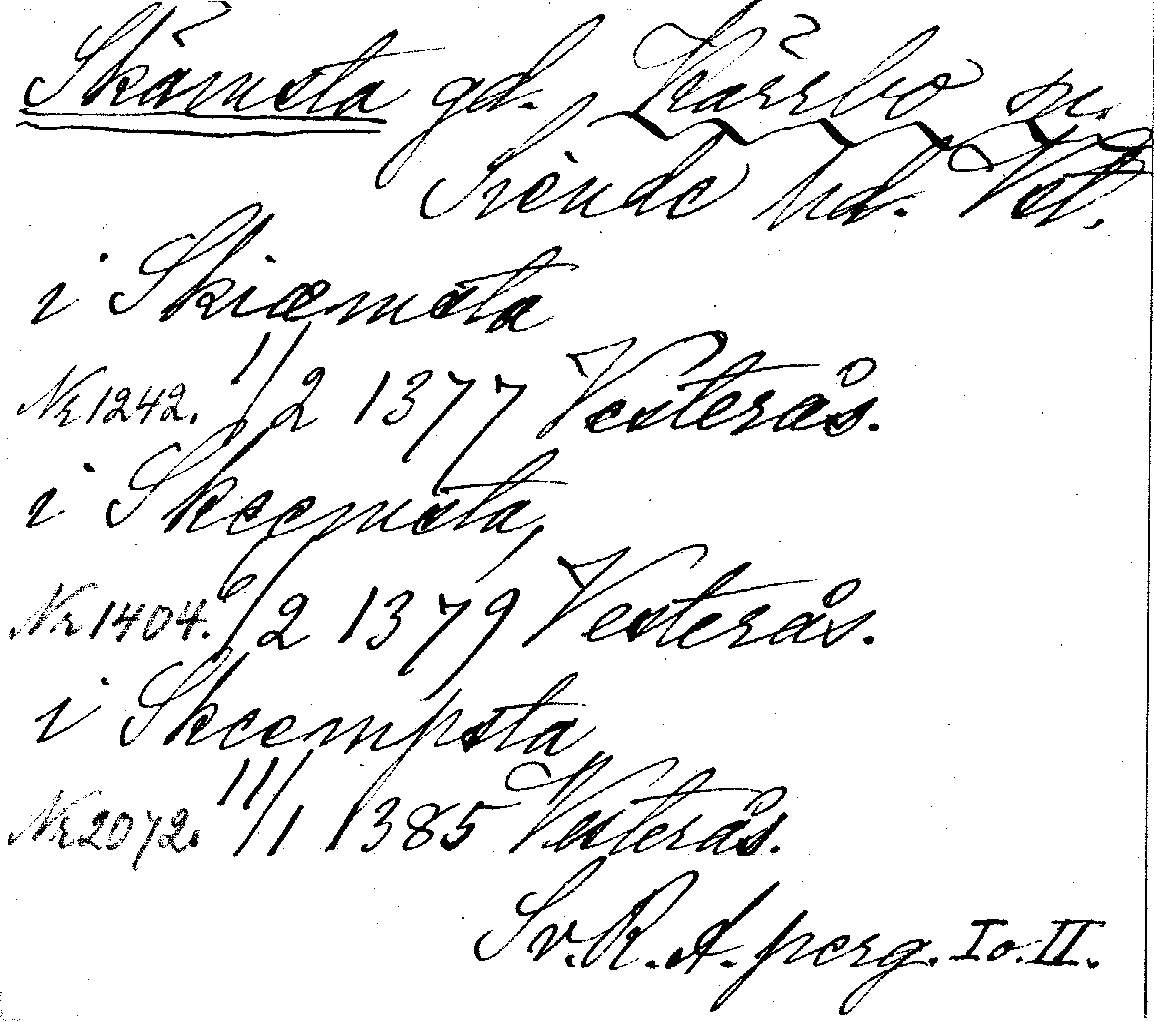 Skämsta gd. Kärrbo sn.
Siende hd. Vstl.
i Skiæmsta
Nr 1242. 1/2 1377 Vesterås.
i Skeemsta,
Nr 1404. 6/2 1379 Vesterås.
i Skeempsta,
Nr 2072. 11/1 1385 Vesterås.
Sv. R. A. perg. I o. II.